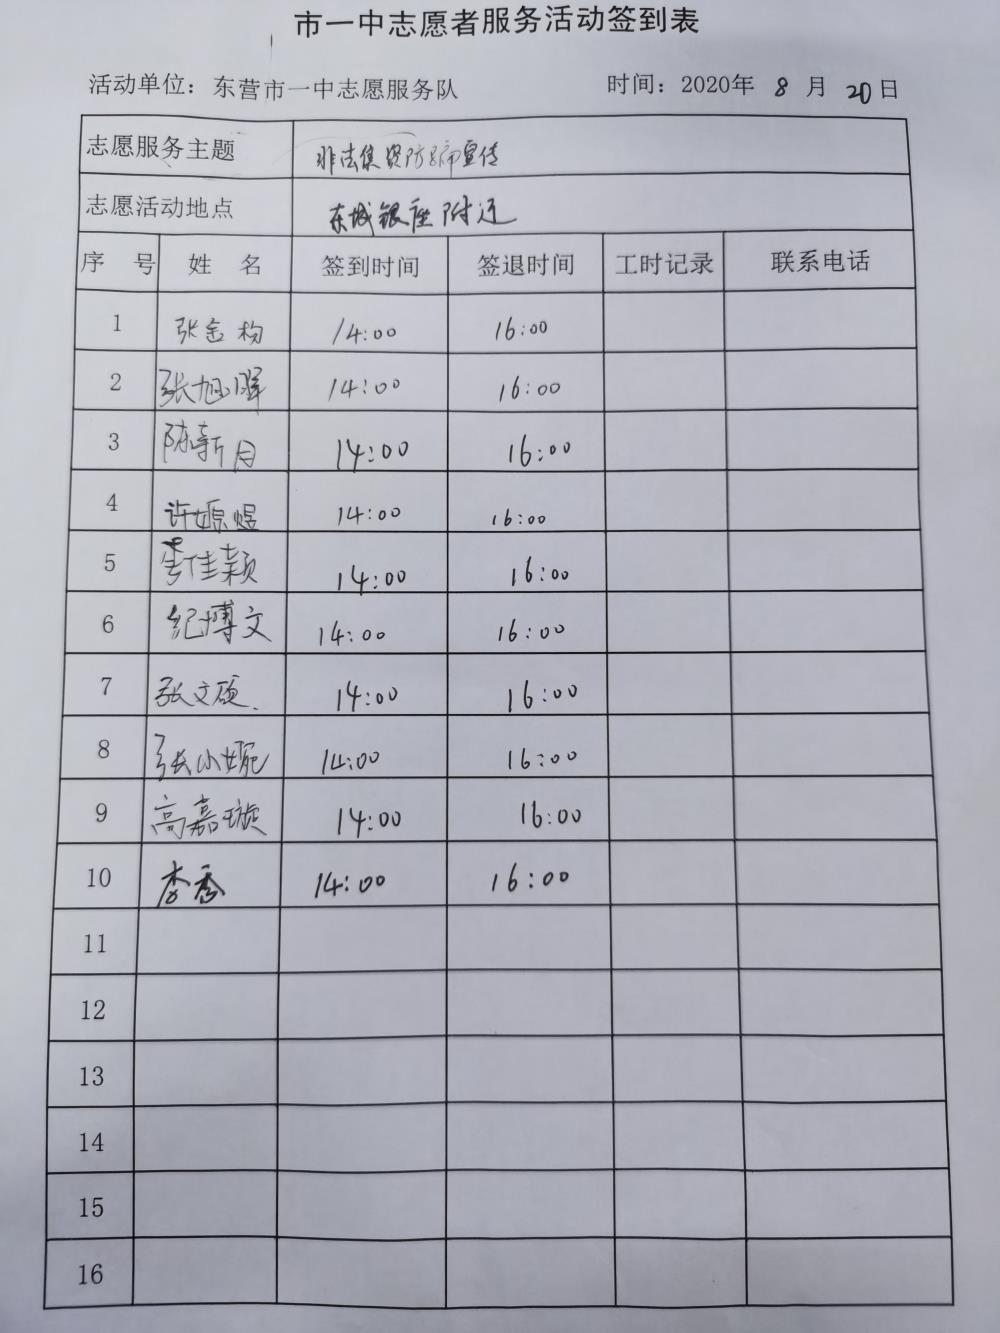 市一中志愿者服务活动签到表
活动单位：东营市一中志愿服务队 时间：2020年 8 月 20 日
志愿服务主题 非法集资防骗宣传
志愿活动地点 东城银座附近
序 号 姓 名 签到时间 签退时间 工时记录 联系电话
1 张金 14:00 16:00
2 张旭晖 14:00 16:00
3 陈新月 14:00 16:00
4 许嫄煜 14:00 16:00
5 李佳颖 14:00 16:00
6 纪博文 14:00 16:00
7 张文硕 14:00 16:00
8 张小婉 14:00 16:00
9 高嘉璇 14:00 16:00
10 李秀 14:00 16:00
11
12
13
14
15
16